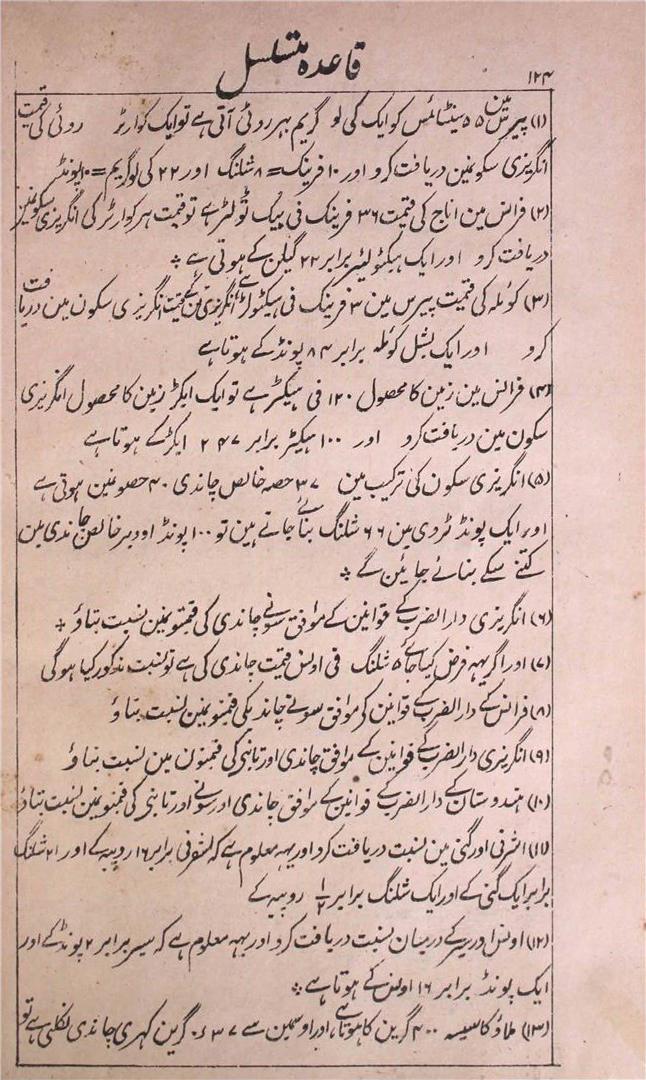 ۱۲۴
قاعدہ متسلسل
(۱) پیرس مین ۵۵ سینٹائمس کو ایک کی لو گریم بہر روئی آتی ہے تو ایک کوارٹر روئی کی قیمت
انگریزی سکونمین دریافت کرو اور ۱۰ فرینک = ۸ شلنگ اور ۲۲ کی لوگریم = ۱۰ پونڈ
(۲) فرانس مین اناج کی قیمت ۳۶ فرینک فی ہیک ٹولٹر ہے تو قیمت ہر کوارٹر کی انگریزی سکونمین
دریافت کرو اور ایک ہیکٹولیٹر برابر ۲۲ گیلن کے ہوتی ہے *
(۳) کوئلہ کی قیمت پیرس مین ۳ فرینک فی ہیکٹولٹر ہے انگریزی ٹن کی قیمت انگریزی سکون مین دریافت
کرو اور ایک بشل کوئلہ برابر ۸۴ پونڈ کے ہوتا ہے
(۴) فرانس مین زمین کا محصول ۱۲۰ فی ہیکٹر ہے تو ایک ایکڑ زمین کا محصول انگریزی
سکون مین دریافت کرو اور ۱۰۰ ہیکٹر برابر ۲۴۷ ایکڑ کے ہوتا ہے
(۵) انگریزی سکون کی ترکیب مین ۳۷ حصہ خالص چاندی ۴۰ حصونمین ہوتی ہے
اور ایک پونڈ ٹروی مین ۶۶ شلنگ بنائے جاتے ہین تو ۱۰۰ پونڈ خالص چاندی مین
کتنے سکے بنائے جائین گے *
(۶) انگریزی دارالضرب کے قوانین کے موافق سونے چاندی کی قیمتونمین نسبت بتاؤ *
(۷) اور اگر یہہ فرض کیا جائے ۵ شلنگ فی اونس قیمت چاندی کی ہے تو نسبت مذکور کیا ہوگی
(۸) فرانس کے دارالضرب کے قوانین کو موافق سونے چاندیکی قیمتونمین نسبت بتاؤ
(۹) انگریزی دارالضرب کے قوانین کے موافق چاندی اور تانبی کی قیمتون مین نسبت بتاؤ
(۱۰) ہندوستان کے دارالضرب کے قوانین کے موافق چاندی اور سونے اور تانبی کی قیمتونمین نسبت بتاؤ
(۱۱) اشرفی اور گنی مین نسبت دریافت کرو اور یہہ معلوم ہے کہ اشرفی برابر ۱۶ روپیہ کے اور ۲۱ شلنگ
برابر ایک گنی کے اور ایک شلنگ برابر ۱/۲ روپیہ کے
(۱۲) اونس اور سیر کے درمیان نسبت دریافت کرو اور یہہ معلوم ہے کہ سیر برابر ۲ پونڈ کے اور
ایک پونڈ برابر ۱۶ اونس کے ہوتا ہے *
(۱۳) کا سیسہ ۴۰۰ گرین کا ہوتا ہے اور اوسمین سے ۳۷ء۰ گرین کہری چاندی نکلتی ہے تو